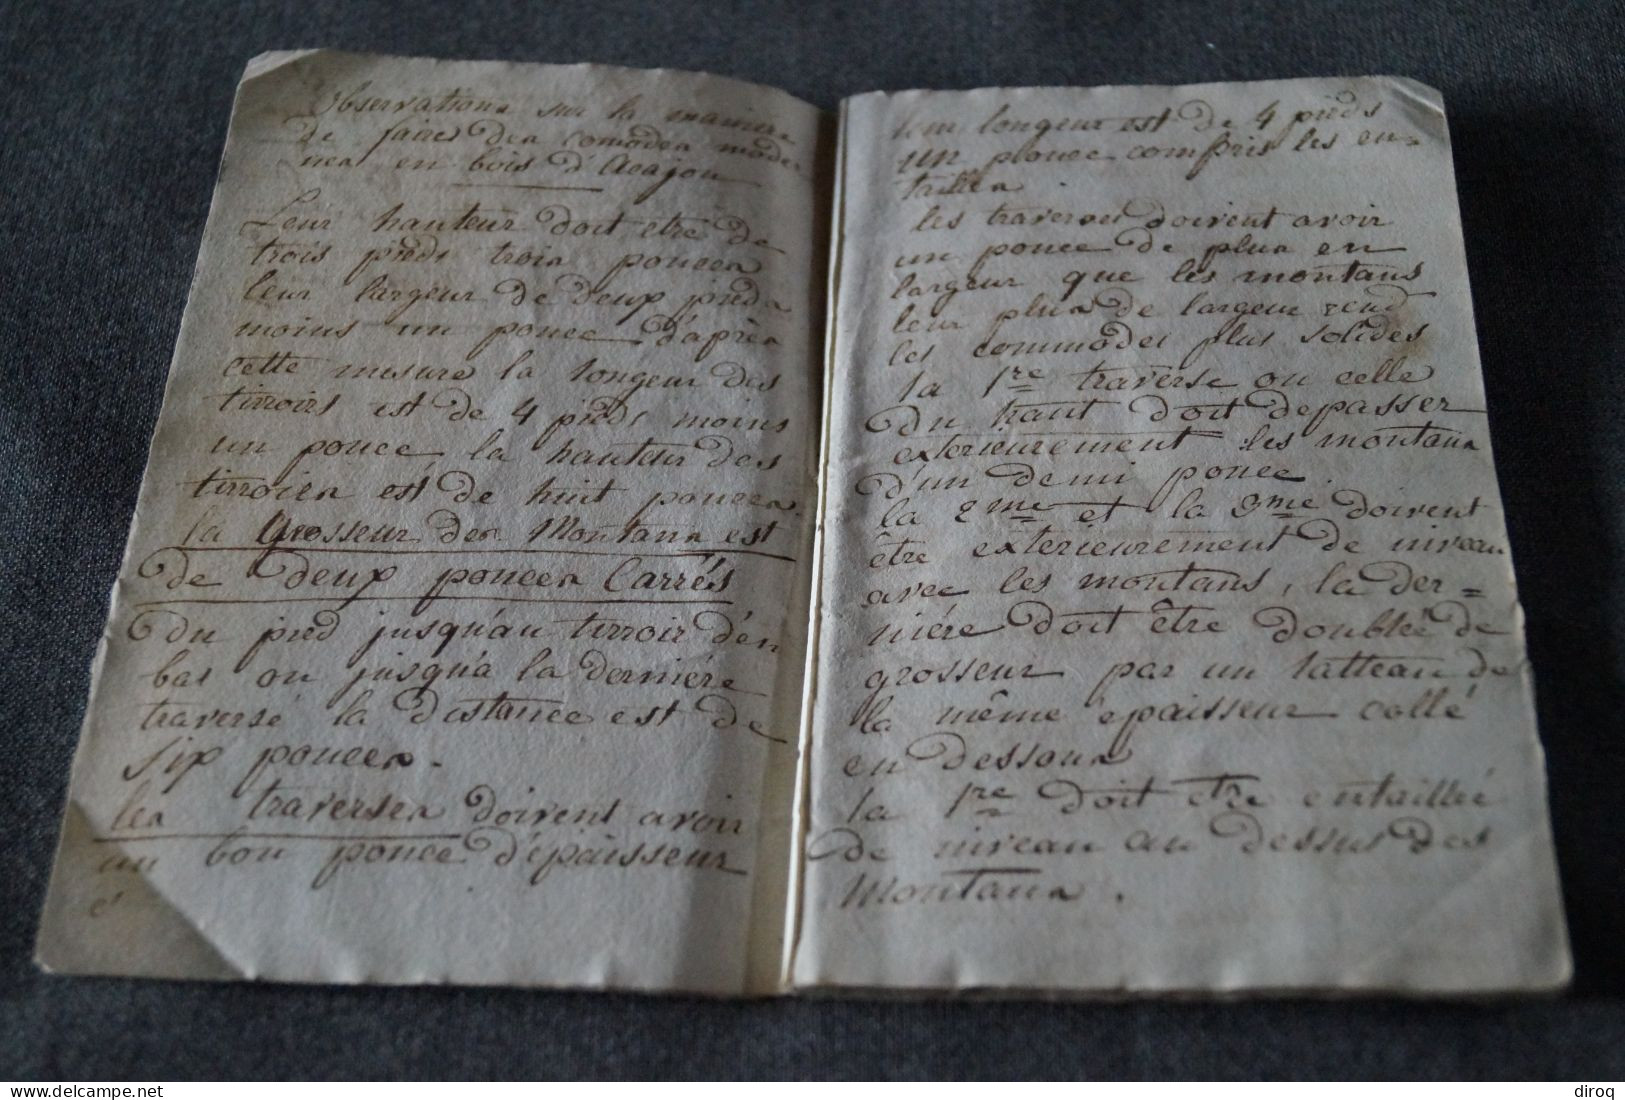 Observations sur la maniere
de faire des comodes moder
nes en bois d'Acajou
Leur hauteur doit etre de
trois pieds trois pouces
leur largeur de deux pieds
moins un pouce d'après
cette mesure la longeur des
tirroirs est de 4 pieds moins
un pouce la hauteur des
tirroirs est de huit pouces.
la grosseur des Montans est
de deux pouces Carrés
Du pied jusqu'au tirroir d'en
bas ou jusqu'a la derniére
traverse la distance est de
six pouces.
les traverses doivent avoir
un bon pouce d'épaisseur
é
leur longeur est de 4 pieds
un pouce compris les en=
tailles
les traverses doivent avoir
un pouce de plus en
largeur que les montans
leur plus de largeur rend
les commodes plus solides
la 1re traverse ou celle
du haut doit depasser
exterieurement les montans
d'un demi pouce
la 2me et la 3me doivent
être exterieurement de niveau
avec les montans, la der=
niére doit être doublée de
grosseur par un latteau de
la même épaisseur collé
en dessous
la 1re doit etre entaillée
de niveau au dessus des
Montans.
diroq